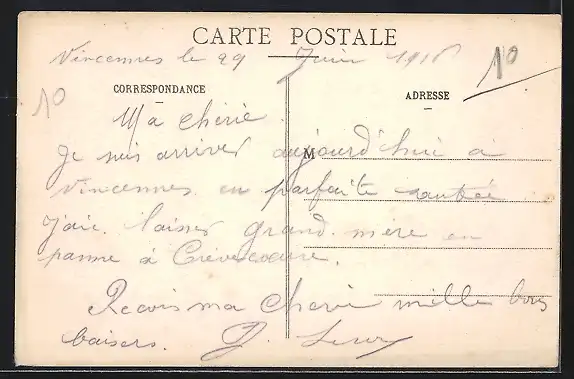 CARTE POSTALE
Vincennes le 29 Juin 1916
10
10
CORRESPONDANCE
ADRESSE
M
Ma chérie
Je suis arriver aujourd'hui à
Vincennes en parfaite santée
J'aie laisser grand mère en
panne à Crévecoeure.
Recois ma cherie mille bons
baisers.